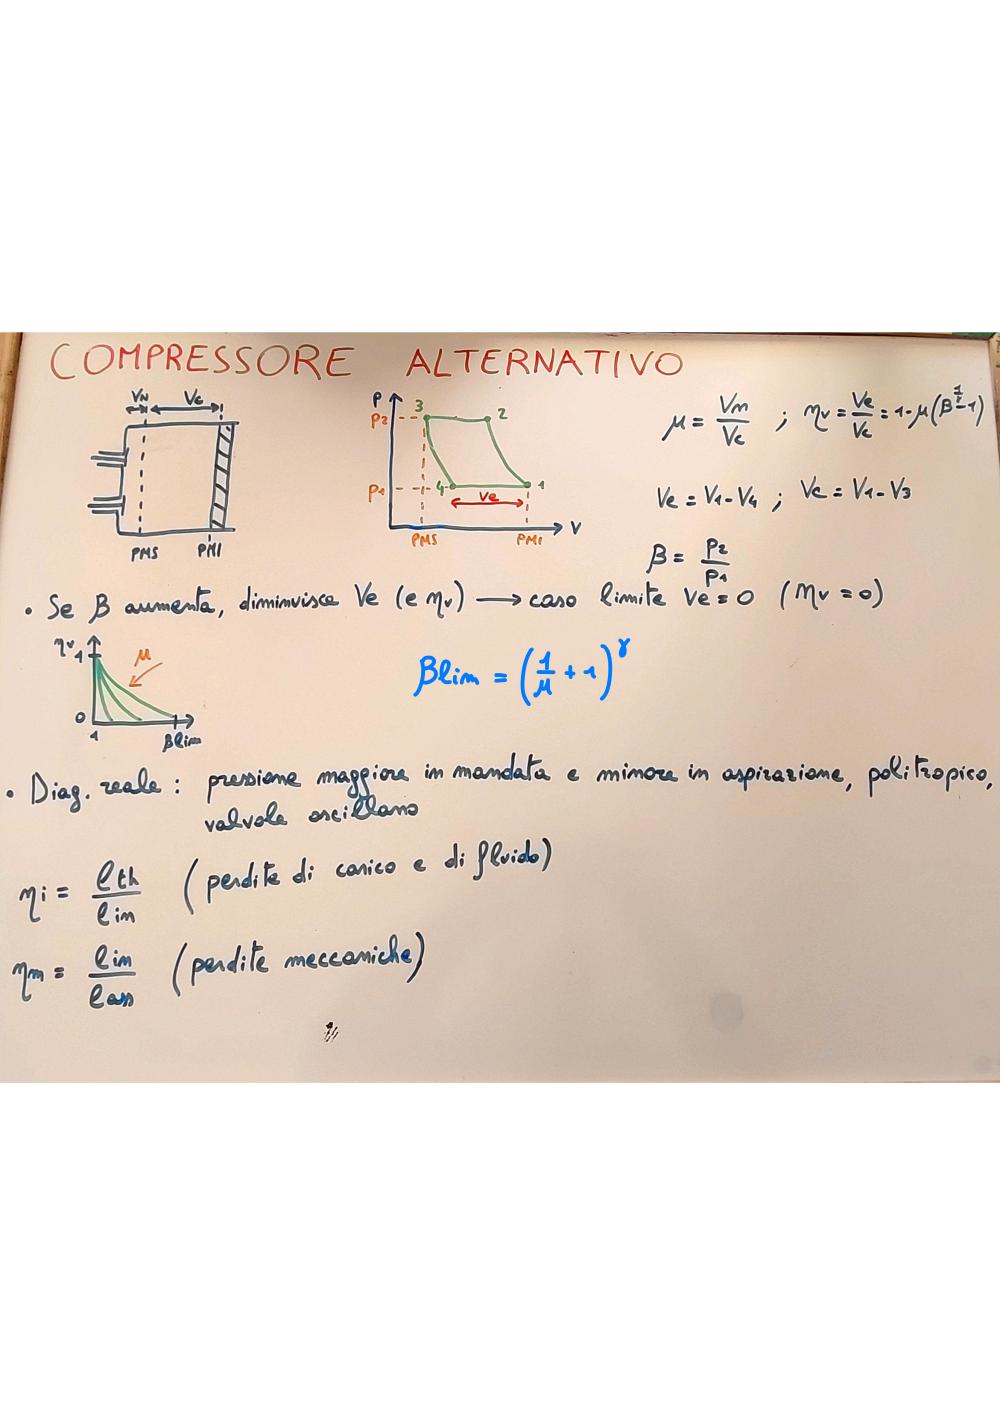 COMPRESSORE ALTERNATIVO
Vn Vc
PMS PMI
P
P2 3 2
P1 4 1
Ve
V
PMS PMI
μ = Vn/Vc ; ηv = Ve/Vc = 1-μ(β^(1/γ)-1)
Ve = V1-V4 ; Vc = V1-V3
β = P2/P1
• Se β aumenta, diminuisce Ve (e ηv) → caso limite Ve=0 (ηv=0)
ηv
1 μ
0
1 βlim
βlim = (1/μ + 1)^γ
• Diag. reale : pressione maggiore in mandata e minore in aspirazione, politropico,
valvole oscillano
ηi = lth/lin (perdite di carico e di fluido)
ηm = lin/lass (perdite meccaniche)